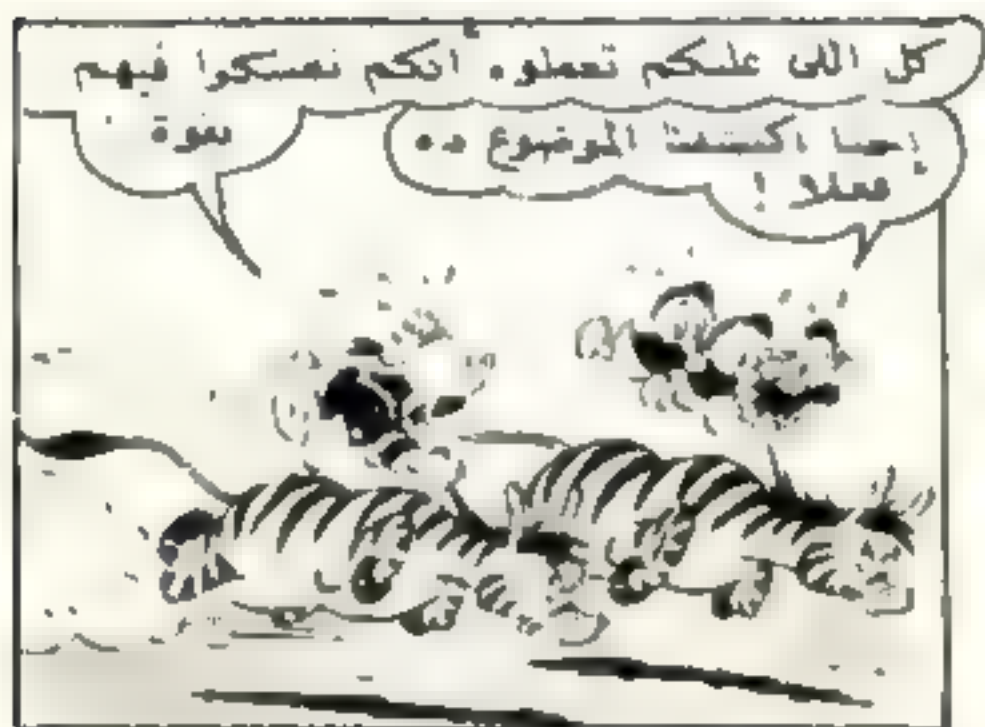 كل اللى عليكم تعملوه انكم تمسكوا فيهم
بقوة
إحنا اكتشفنا الموضوع ده
فعلا !